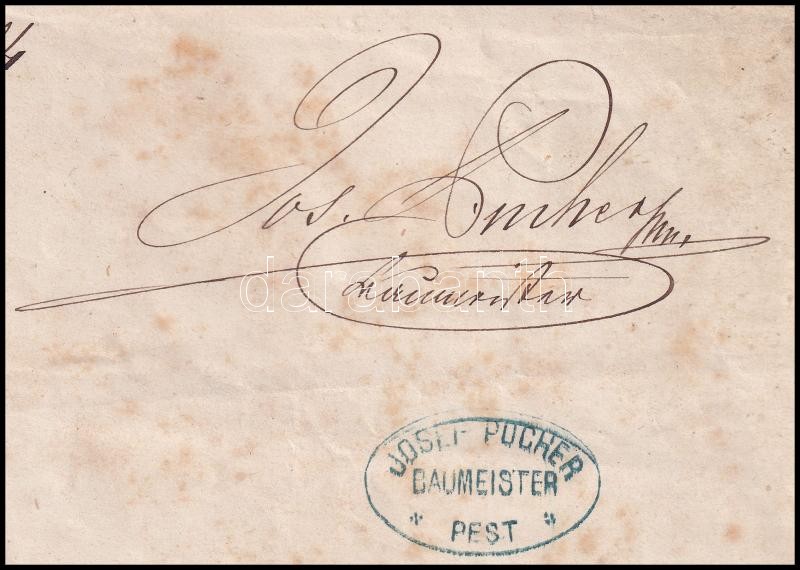 Jos. Pucher
Baumeister
darabanth
JOSEF PUCHER
BAUMEISTER
* PEST *